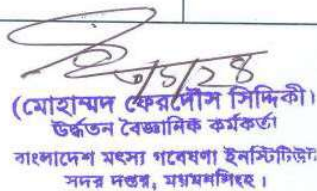 ৩/১/২৪
(মোহাম্মদ ফেরদৌস সিদ্দিকী)
ঊর্ধ্বতন বৈজ্ঞানিক কর্মকর্তা
বাংলাদেশ মৎস্য গবেষণা ইনস্টিটিউট
সদর দপ্তর, ময়মনসিংহ।